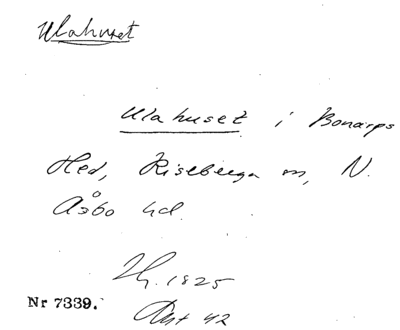 Ulahuset
Ulahuset i Bonarps
Hed, Riseberga sn, N.
Åsbo hd.
Hf. 1825
Nr 7339.
Avst 42